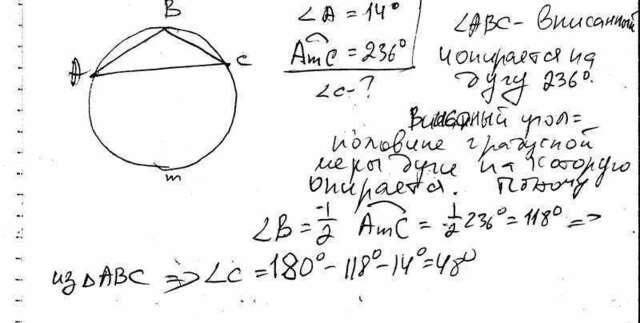 B
A
C
m
∠A = 14°
AmC = 236°
∠C - ?
∠ABC - вписанный
и опирается на
дугу 236°.
Вписанный угол =
половине градусной
меры дуги на которую
опирается. Поэтому
∠B = 1/2 AmC = 1/2 236° = 118° =>
из △ABC => ∠C = 180° - 118° - 14° = 48°